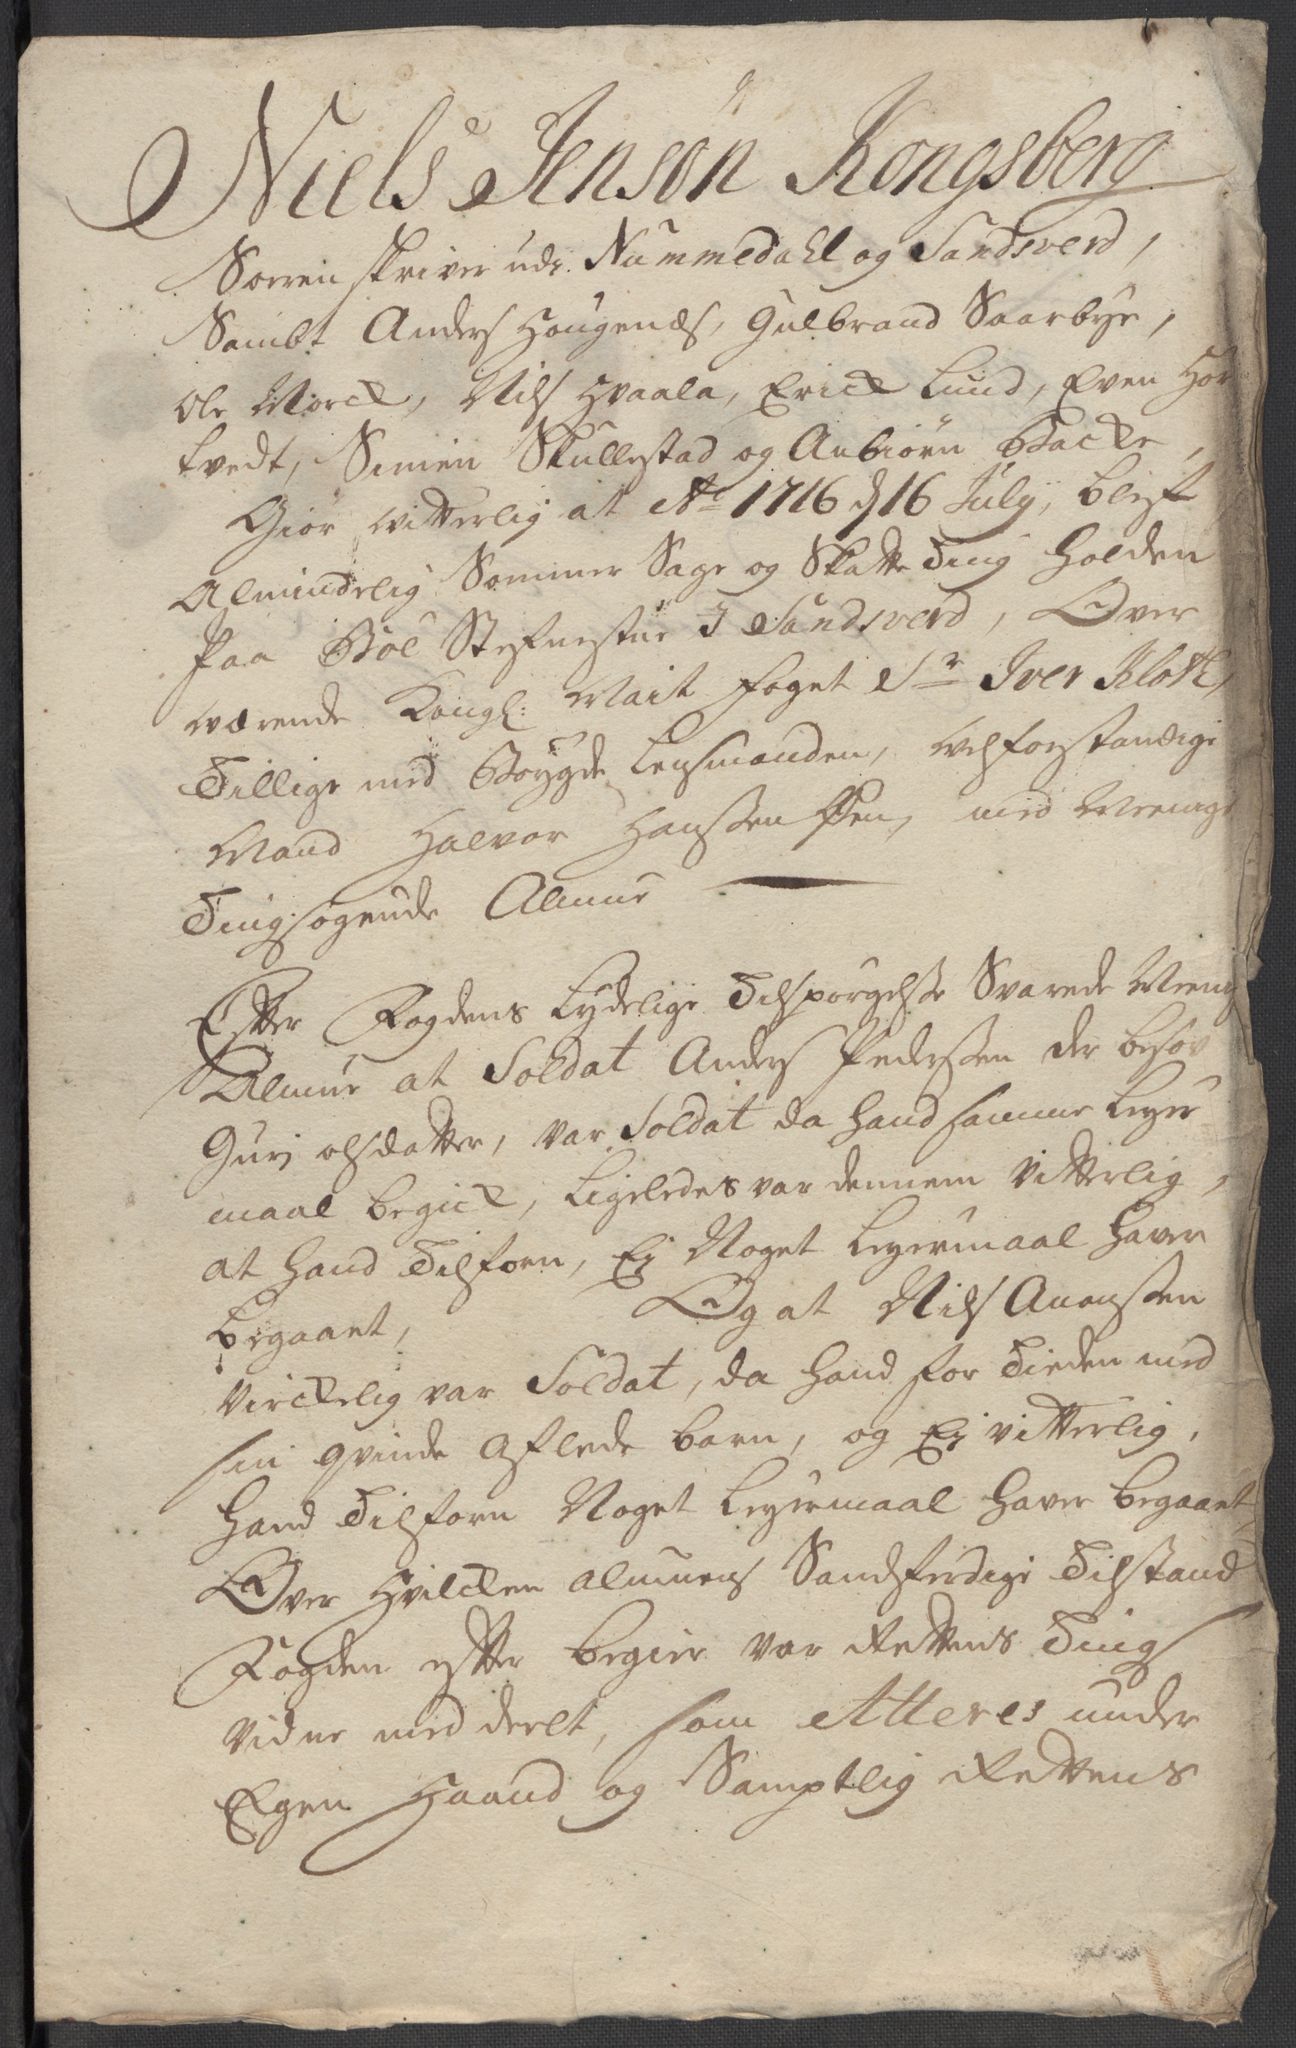 Niels Jensøn Kongsberg
Sorren skriver udi Nummedahl og Sandsverd,
Sambt Anders Hougenes, Gulbrand Saarbye,
Ole Morck, Nils Hvaala, Erick Lund, Even Hør
tvedt, Simen Skullestad og Anbiørn Backe,
Giør witterlig at Ao 1716 d 16 July, blef
Almindelig Sommer Sage og Skatte Ting holden
paa Bøe Stefnestue I Sandsverd, Over
werende Kongl: Mait foget Sr Iver Klok,
Tillige med Bøygde Lensmanden, welforstandige
Mand Halvor Hanssen, med Meenige
Tingsøgende Almue
Efter Fogdens Lydelige Tilspørgelse Svarede Meenig
Almue at Soldat Anders Pedersen der besov
Guri olsdatter, var Soldat da hand samme Leyer
maal begick, Ligeledes var dennem Vitterlig,
at hand Tilforn, Ej Noget Leyermaal haver
begaaet, Og at Nils Anenssen
Virckelig var Soldat, da hand for Tieden med
sin qvinde Aflede barn, og Ej vitterlig,
hand Tilforn Noget Leyermaal haver begaaet
Over hvilcken almuens Sandferdige Tilstand
Fogden efter begier var Rettens Tings
Vidne med deelt, som Atteres under
Egen Haand og Samptlig Rettens